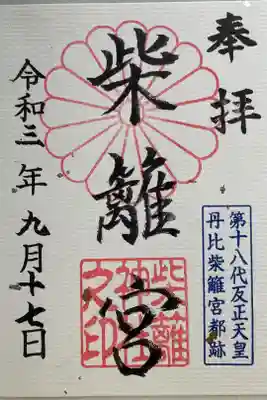 奉拝
第十八代反正天皇
丹比柴籬宮都跡
柴籬宮
柴籬
神社
之印
令和三年九月十七日